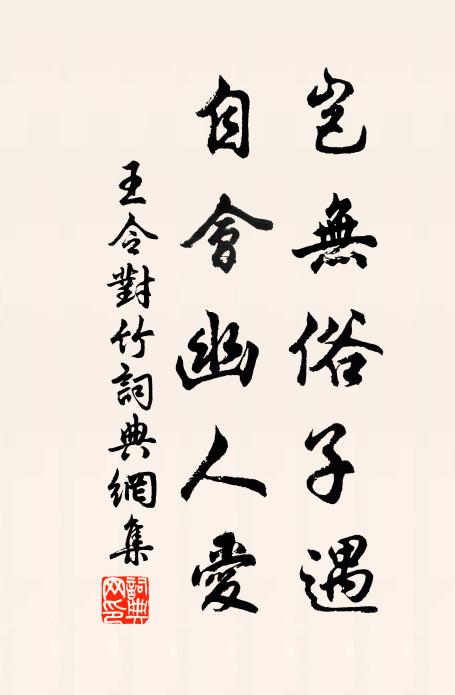 豈無俗子遇
自會幽人愛
王令對竹詞典網集
詞典
网印